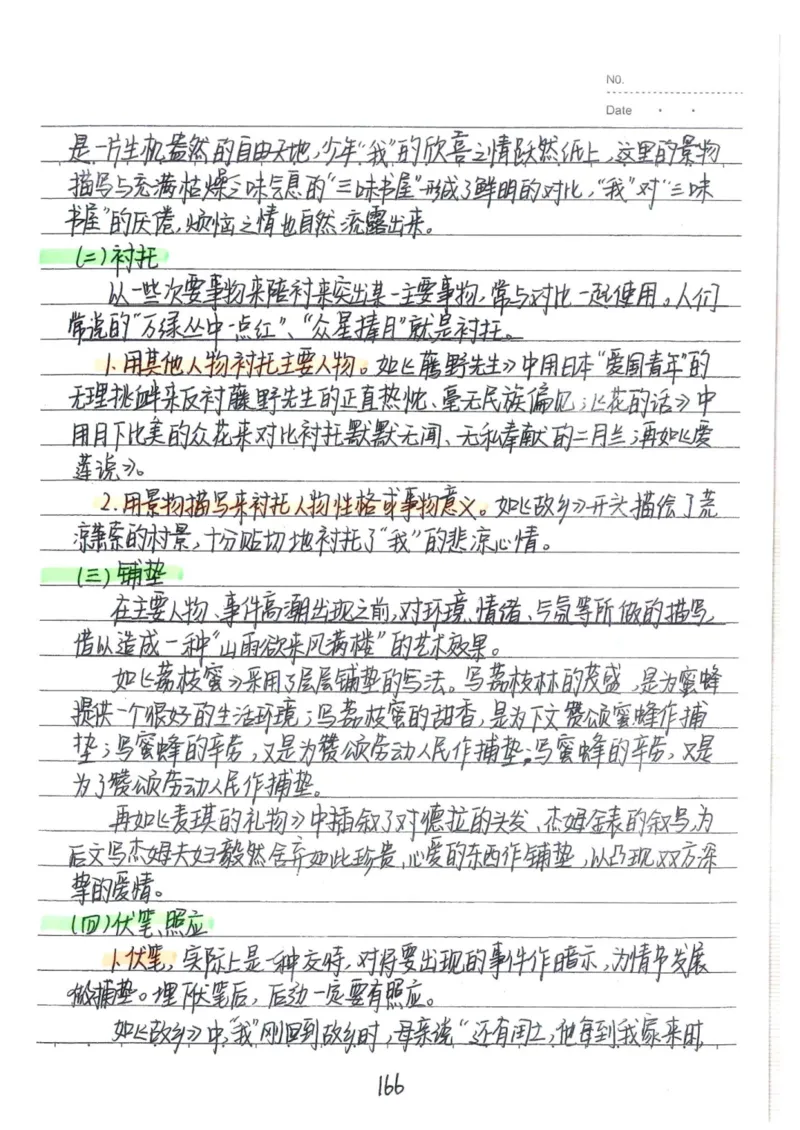 NO.
Date
是一片生机盎然的自由天地,少年“我”的欣喜之情跃然纸上,这里的景物
描写与充满枯燥之味气息的“三味书屋”形成了鲜明的对比,“我”对“三味
书屋”的厌倦,烦恼之情也自然流露出来。
(二)衬托
以一些次要事物来陪衬来突出某一主要事物,常与对比一起使用。人们
常说的“万绿丛中一点红”、“众星捧月”就是衬托。
1.用其他人物衬托主要人物。如《藤野先生》中用日本“爱国青年”的
无理挑衅来反衬藤野先生的正直热忱、毫无民族偏见;《花的话》中
用月下比美的众花来对比衬托默默无闻、无私奉献的二月兰;再如《爱
莲说》。
2.用景物描写来衬托人物性格或事物意义。如《故乡》开头描绘了荒
凉萧索的村景,十分贴切地衬托了“我”的悲凉心情。
(三)铺垫
在主要人物、事件高潮出现之前,对环境、情绪、气氛等所做的描写,
借以造成一种“山雨欲来风满楼”的艺术效果。
如《荔枝蜜》采用了层层铺垫的写法。写荔枝林的茂盛,是为蜜蜂
提供一个很好的生活环境;写荔枝蜜的甜香,是为下文赞颂蜜蜂作捕
垫;写蜜蜂的辛劳,又是为赞颂劳动人民作捕垫;写蜜蜂的辛劳,又是
为了赞颂劳动人民作捕垫。
再如《麦琪的礼物》中插叙了对德拉的头发、杰姆金表的叙写,为
后文写杰姆夫妇毅然舍弃如此珍贵、心爱的东西作铺垫,以凸现双方深
挚的爱情。
(四)伏笔、照应
1.伏笔,实际上是一种交待,对将要出现的事件作暗示,为情节发展
做捕垫。埋下伏笔后,后边一定要有照应。
如《故乡》中,“我”刚回到故乡时,母亲说“还有闰土,他每到我家来时,
166